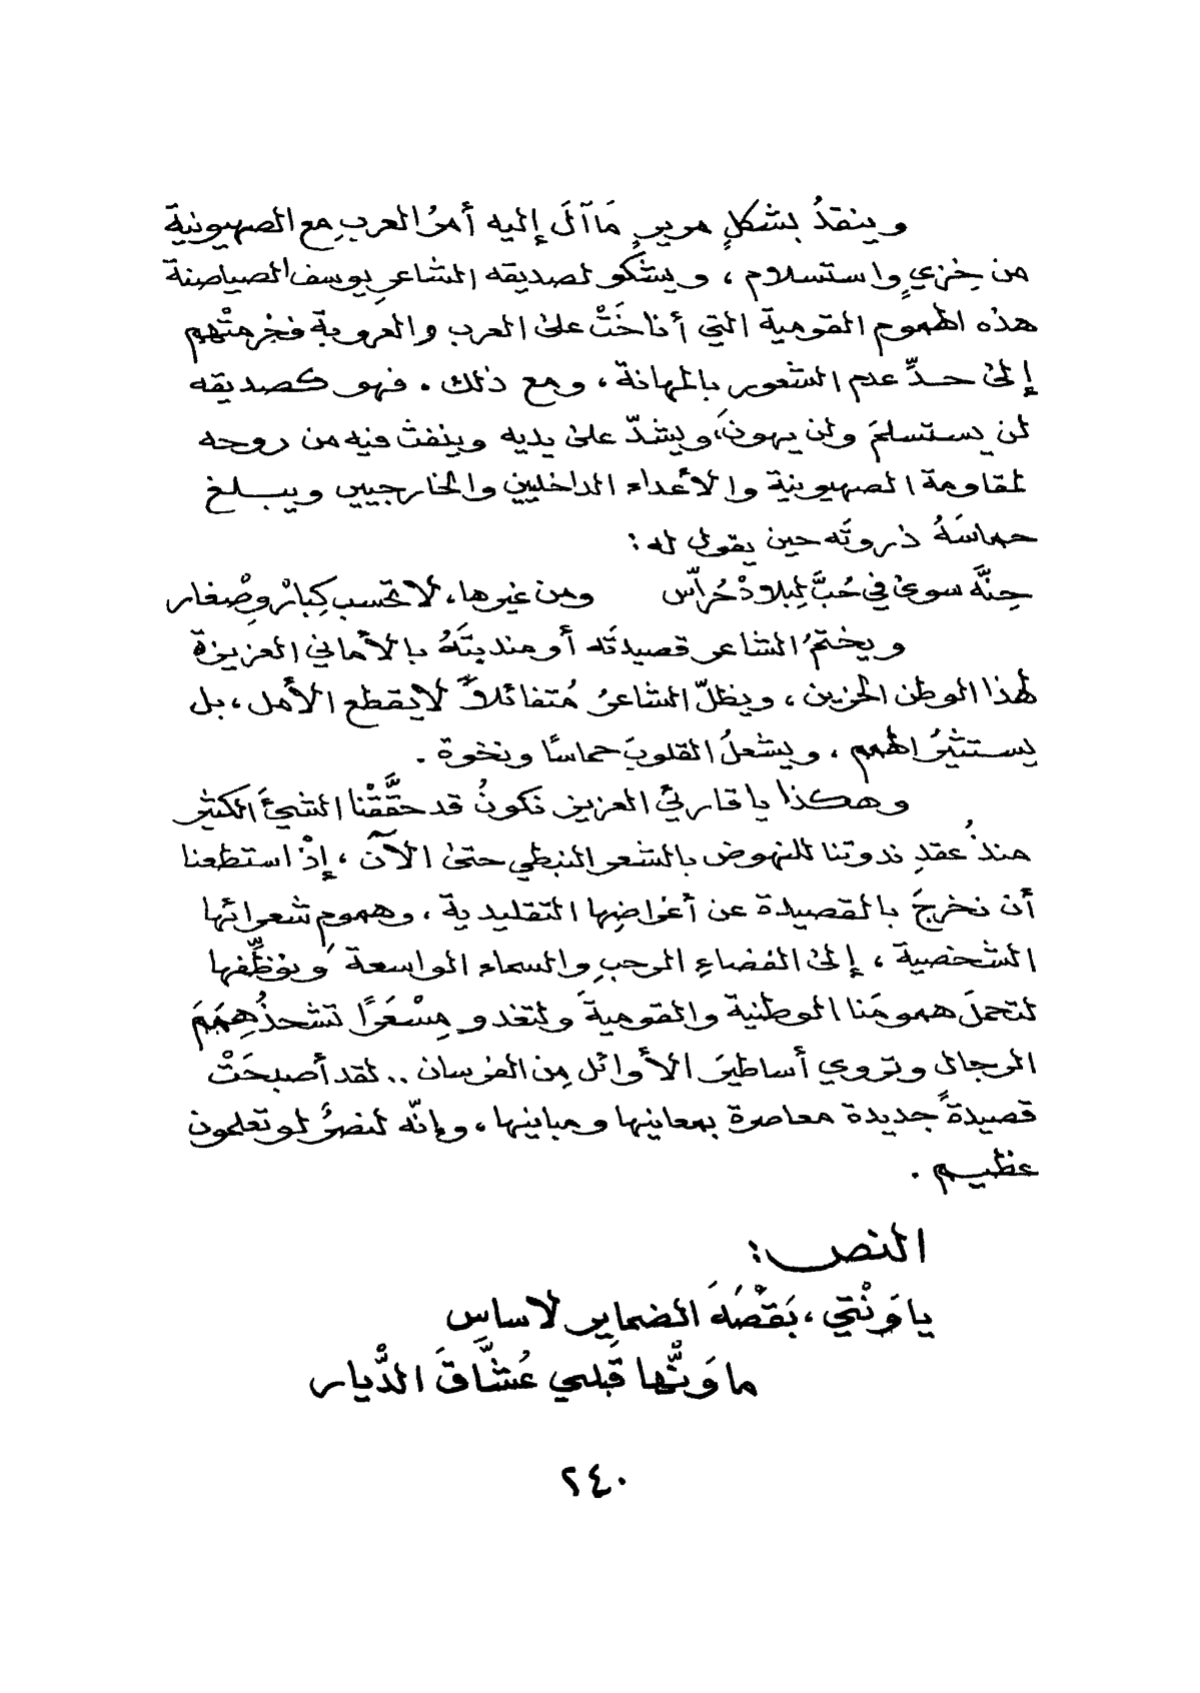 وينقدُ بشكلٍ مريرٍ مَا آلَ إليه أمرُ العربِ مع الصهيونية
من خِزيٍ واستسلام ، ويشكو لصديقه الشاعرِ يوسف الصياصنة
هذه الهموم القومية التي أناخَتْ على العرب والعروبة فخرمتْهم
إلى حدِّ عدم الشعور بالمهانة ، ومع ذلك . فهو كصديقه
لن يستسلمَ ولن يهونَ، ويشدّ على يديه وينفث فيه من روحه
لمقاومة الصهيونية والأعداء الداخليين والخارجيين ويبلغ
حماسَهُ ذروتَه حين يقول له :
حِنَّه سوى في حُبَّ لِبلادْ حُراّس ومن غيرها، لا تحسب كِبارْ وِصْغار
ويختمُ الشاعر قصيدتَه أو منديتَهُ بالأماني العزيزة
لهذا الوطن الحزين ، ويظلّ الشاعرُ مُتفائلاً لا يقطع الأمل ، بل
يستثيرُ الهمم ، ويشعلُ القلوبَ حماسًا ونخوة .
وهكذا يا قارئي العزيز نكونُ قد حقَّقْنا الشيءَ الكثير
منذُ عقدِ ندوتنا للنهوض بالشعر النبطي حتى الآن ، إذْ استطعنا
أن نخرجَ بالقصيدة عن أغراضِها التقليدية ، وهموم شعرائها
الشخصية ، إلى الفضاءِ الرحبِ والسماء الواسعة ونوظِّفها
لتحملَ همومَنا الوطنية والقوميةَ ولتغدو مِسْعَرًا تشحذُ هِمَمَ
الرجال وتروي أساطيرَ الأوائل مِن الفرسان .. لقد أصبحَتْ
قصيدةً جديدة معاصرة بمعانيها ومبانيها ، وإنّه لنصرٌ لو تعلمون
عظيم .
النص :
يا وَنْتي ، بَقْصَهَ الضماير لاساس
ما وَنْها قَبلي عُشَّاقَ الدْيار
٢٤٠